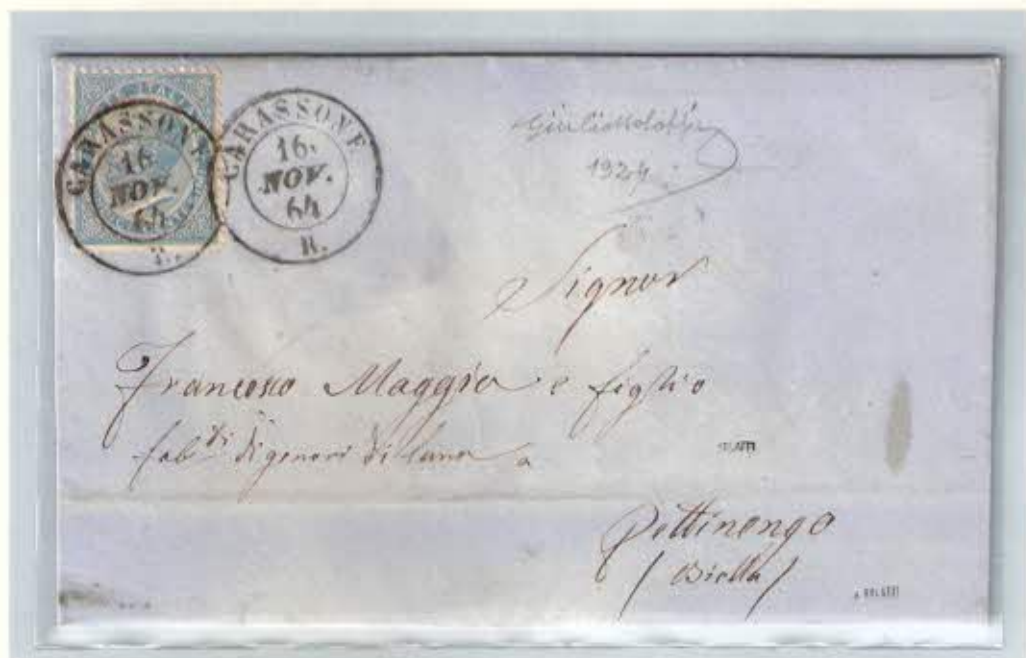 CARASSONE
16
NOV.
64
CARASSONE
16.
NOV.
64
R.
1924
Signor
Francesco Maggia e figlio
fab.ti di generi di lana a
Pettinengo
(Biella)